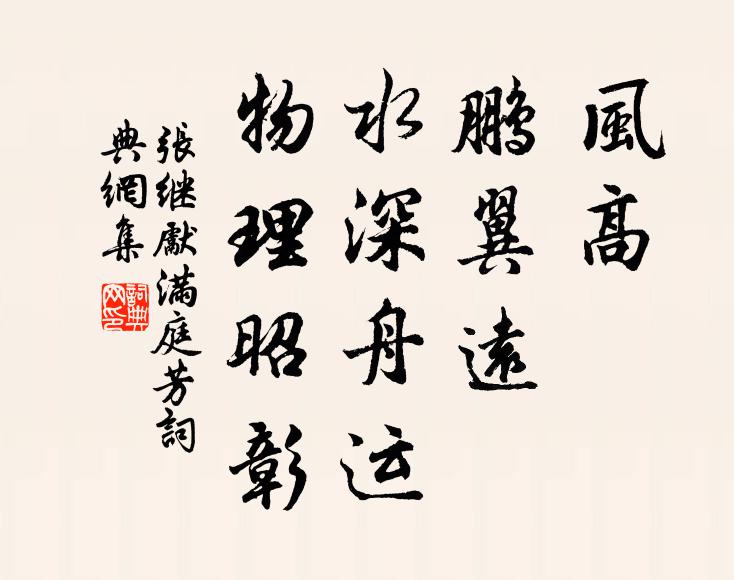 風高
鵬翼遠
水深舟运
物理昭彰
張继獻滿庭芳詞
典網集
詞典
网印